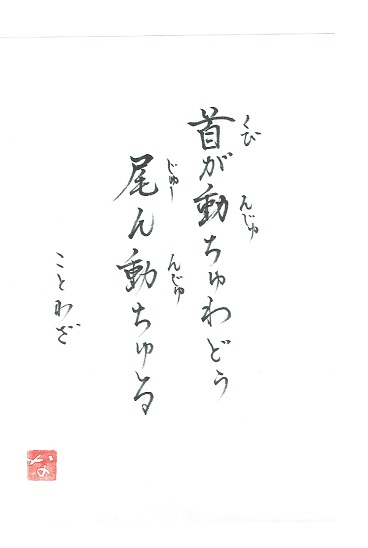 首が動ちゅわどぅ
くび
んじゅ
尾ん動ちゅる
じゅー
んじゅ
ことわざ